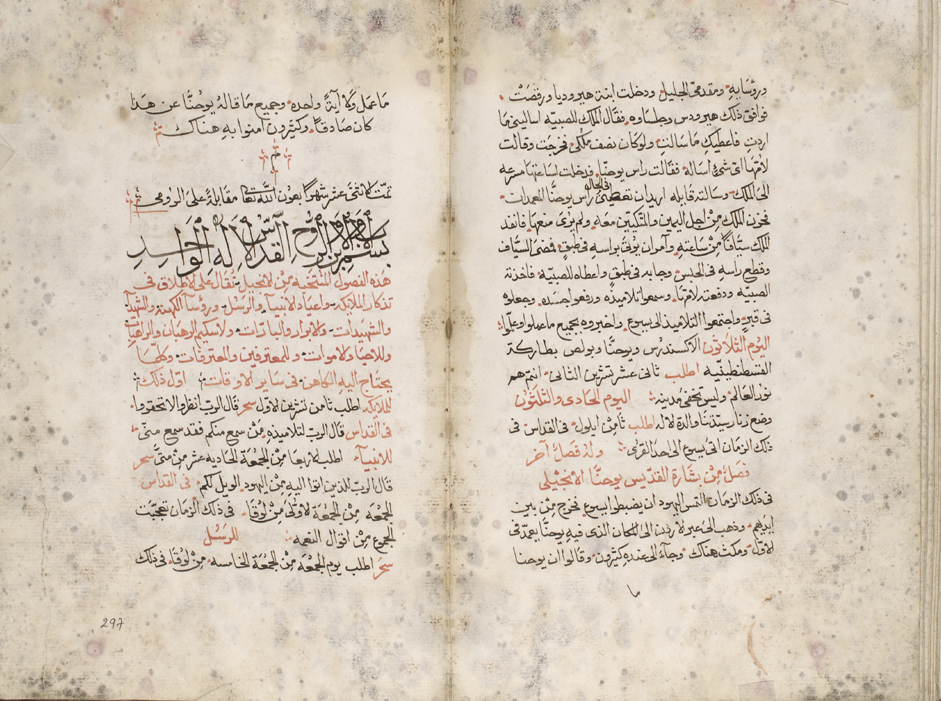 ورؤسايه ومقدمي الجليل ودخلت ابنة هيروديا ورقصت
فوافق ذلك هيرودس وجلساوه فقال الملك للصبيه اساليني ما
اردتِ فاعطيكِ ما سالتِ ولو كان نصف ملكي فخرجت وقالت
لامها اي شيء اساله فقالت راس يوحنا فدخلت لساعتها مسرعه
الى الملك وسالته قايله اريد ان تعطيني في الحال راس يوحنا المعمدان
فحزن الملك من اجل اليمين والمتكيين معه ولم يرى منعها فانفد
الملك سيافا من ساعته وامر ان يؤتى براسه في طبق فمضى السياف
وقطع راسه في الحبس وجا به في طبق واعطاه للصبيه فاخذته
الصبيه ودفعته لامها وسمعوا تلاميذه ورفعوا جسده وجعلوه
في قبر واجتمعوا التلاميذ الى يسوع واخبروه بجميع ما عملوا وعلموا
اليوم الثلاثون الاكسندرس ويوحنا وبولص بطاركة
القسطنطينيه اطلب ثاني عشر تشرين الثاني انتم هم
نور العالم وليس تخفى مدينة اليوم الحادي والثلثون
وضع زنار سيدتنا والدة لاله اطلب ثامن ايلول في القداس في
ذلك الزمان اتى يسوع الى احد القرى وله فصل آخر
فصل من بشارة القديس يوحنا الانجيلي
في ذلك الزمان التمس اليهود ان يضبطوا يسوع فخرج من بين
ايديهم وذهب الى عبر لاردن الى المكان الذي فيه يوحنا يعمد في
لاول ومكث هناك وجاء الى عنده كثيرون وقالوا ان يوحنا
ما
ما عمل ولا آية واحده وجميع ما قاله يوحنا عن هذا
كان صادقا وكثيرون آمنوا به هناك
تم
تمت كاثني عشر شهرا بعون الله تعا مقابلة على الرومي
بسم الاب والابن والروح القدس لاله الواحد
هذه الفصول المنتخبة من لانجيل تقال على الاطلاق في
تذكار الملايكه واعياد لانبيا والرسل ورؤسا الكهنة والشهدا
والشهيدات ولابرار والبارات ولاسكيم الرهبان والراهبات
وللاحيا ولاموات وللمعترفين والمعترفات وكلما
يحتاج اليه الكاهن في ساير الاوقات اول ذلك
للملايكه اطلب ثامن تشرين لاول سحر قال الرب انظروا لا تحقروا
في القداس قال الرب لتلاميذه من سمع منكم فقد سمع مني
للانبياء اطلب لاربعا من الجمعة الحادية عشر من متى سحر
قال الرب للذين اتوا اليه من اليهود الويل لكم في القداس
الجمعه من الجمعة لاولى من لوقا في ذلك الزمان تعجبت
الجموع من اقوال النعمه للرسل
سحر اطلب يوم الجمعه من الجمعة الخامسه من لوقا في ذلك
297